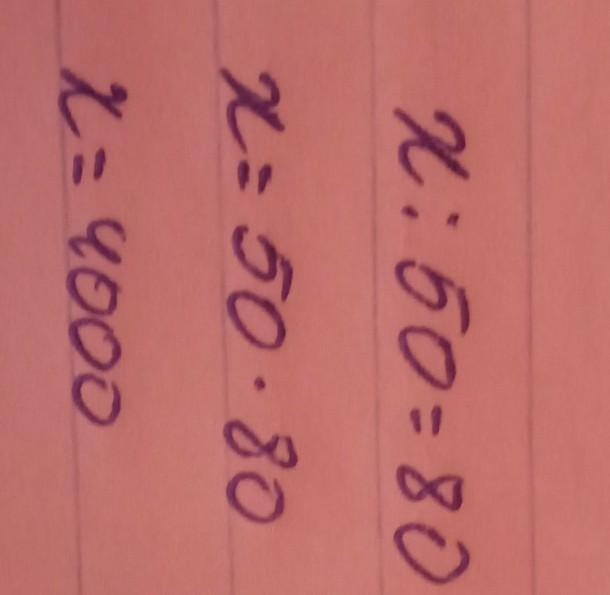 x : 50 = 80
x = 50 · 80
x = 4000